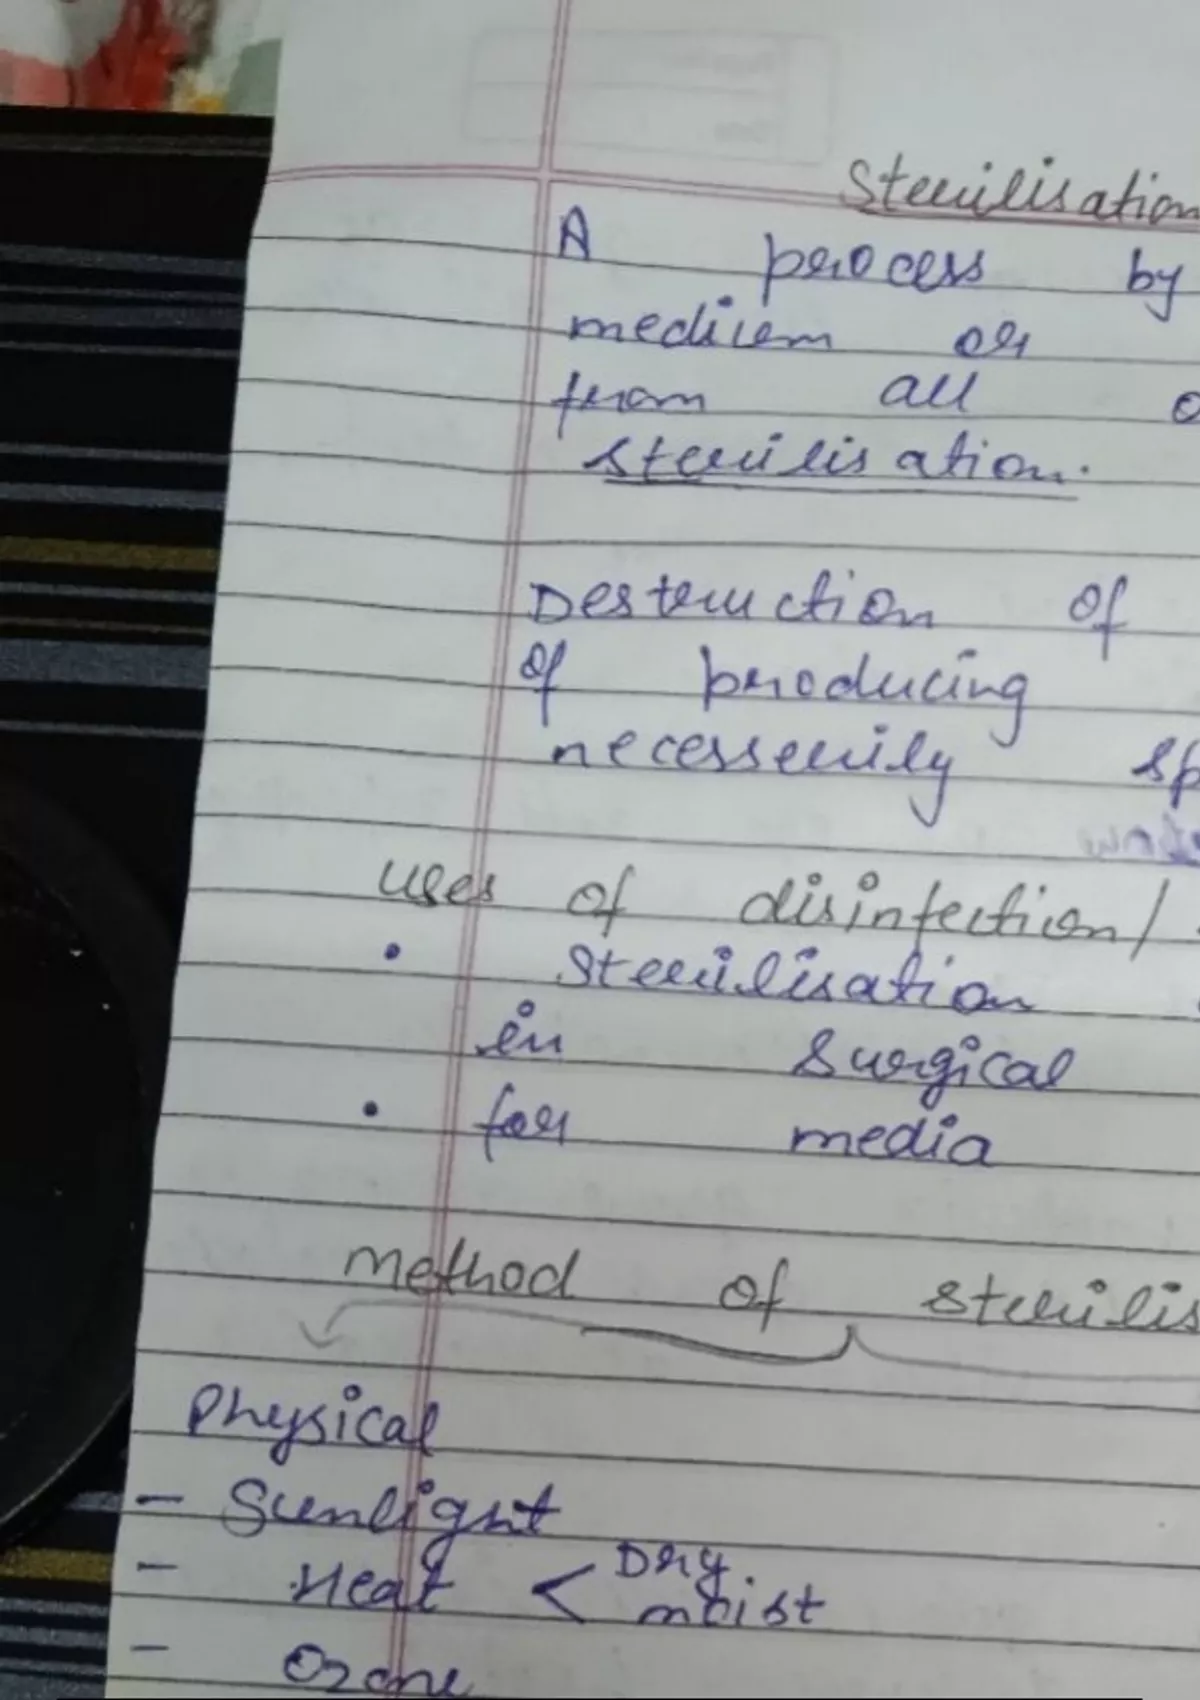 Sterilisation
A process by
medium or
from all
sterilisation.
Destruction of
of producing
necesserily sp
uses of disinfection/
• Sterilisation
in surgical
• for media
method of sterilis
Physical
- Sunlight
- Heat < Dry
moist
- Ozone